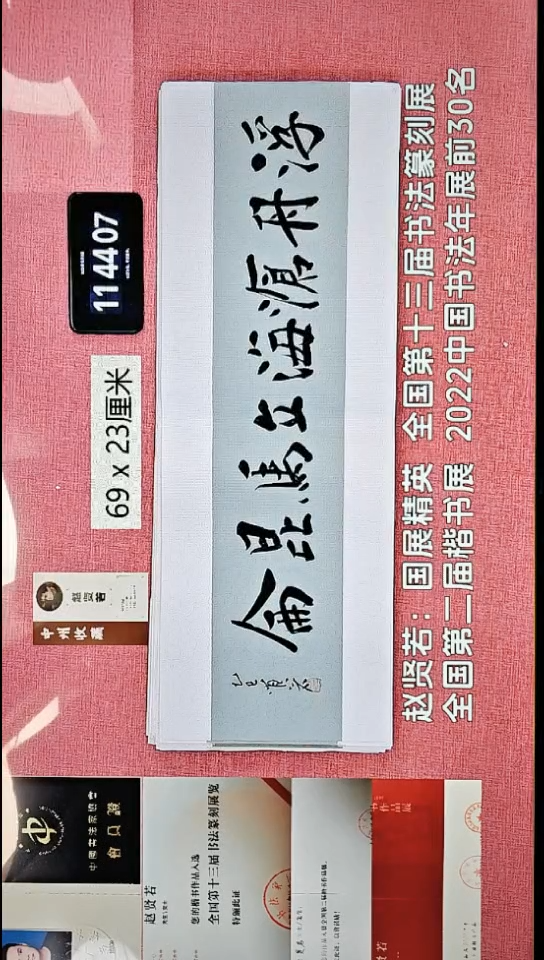 11 44 07
69 x 23厘米
赵贤若
中州收藏
浮舟滄海立馬昆侖
乙巳賢若
赵贤若：国展精英 全国第十三届书法篆刻展
全国第二届楷书展 2022中国书法年展前30名
中國書法家協會
會員證
赵贤若
您的楷书作品入选
全国第十三届书法篆刻展览
特颁此证